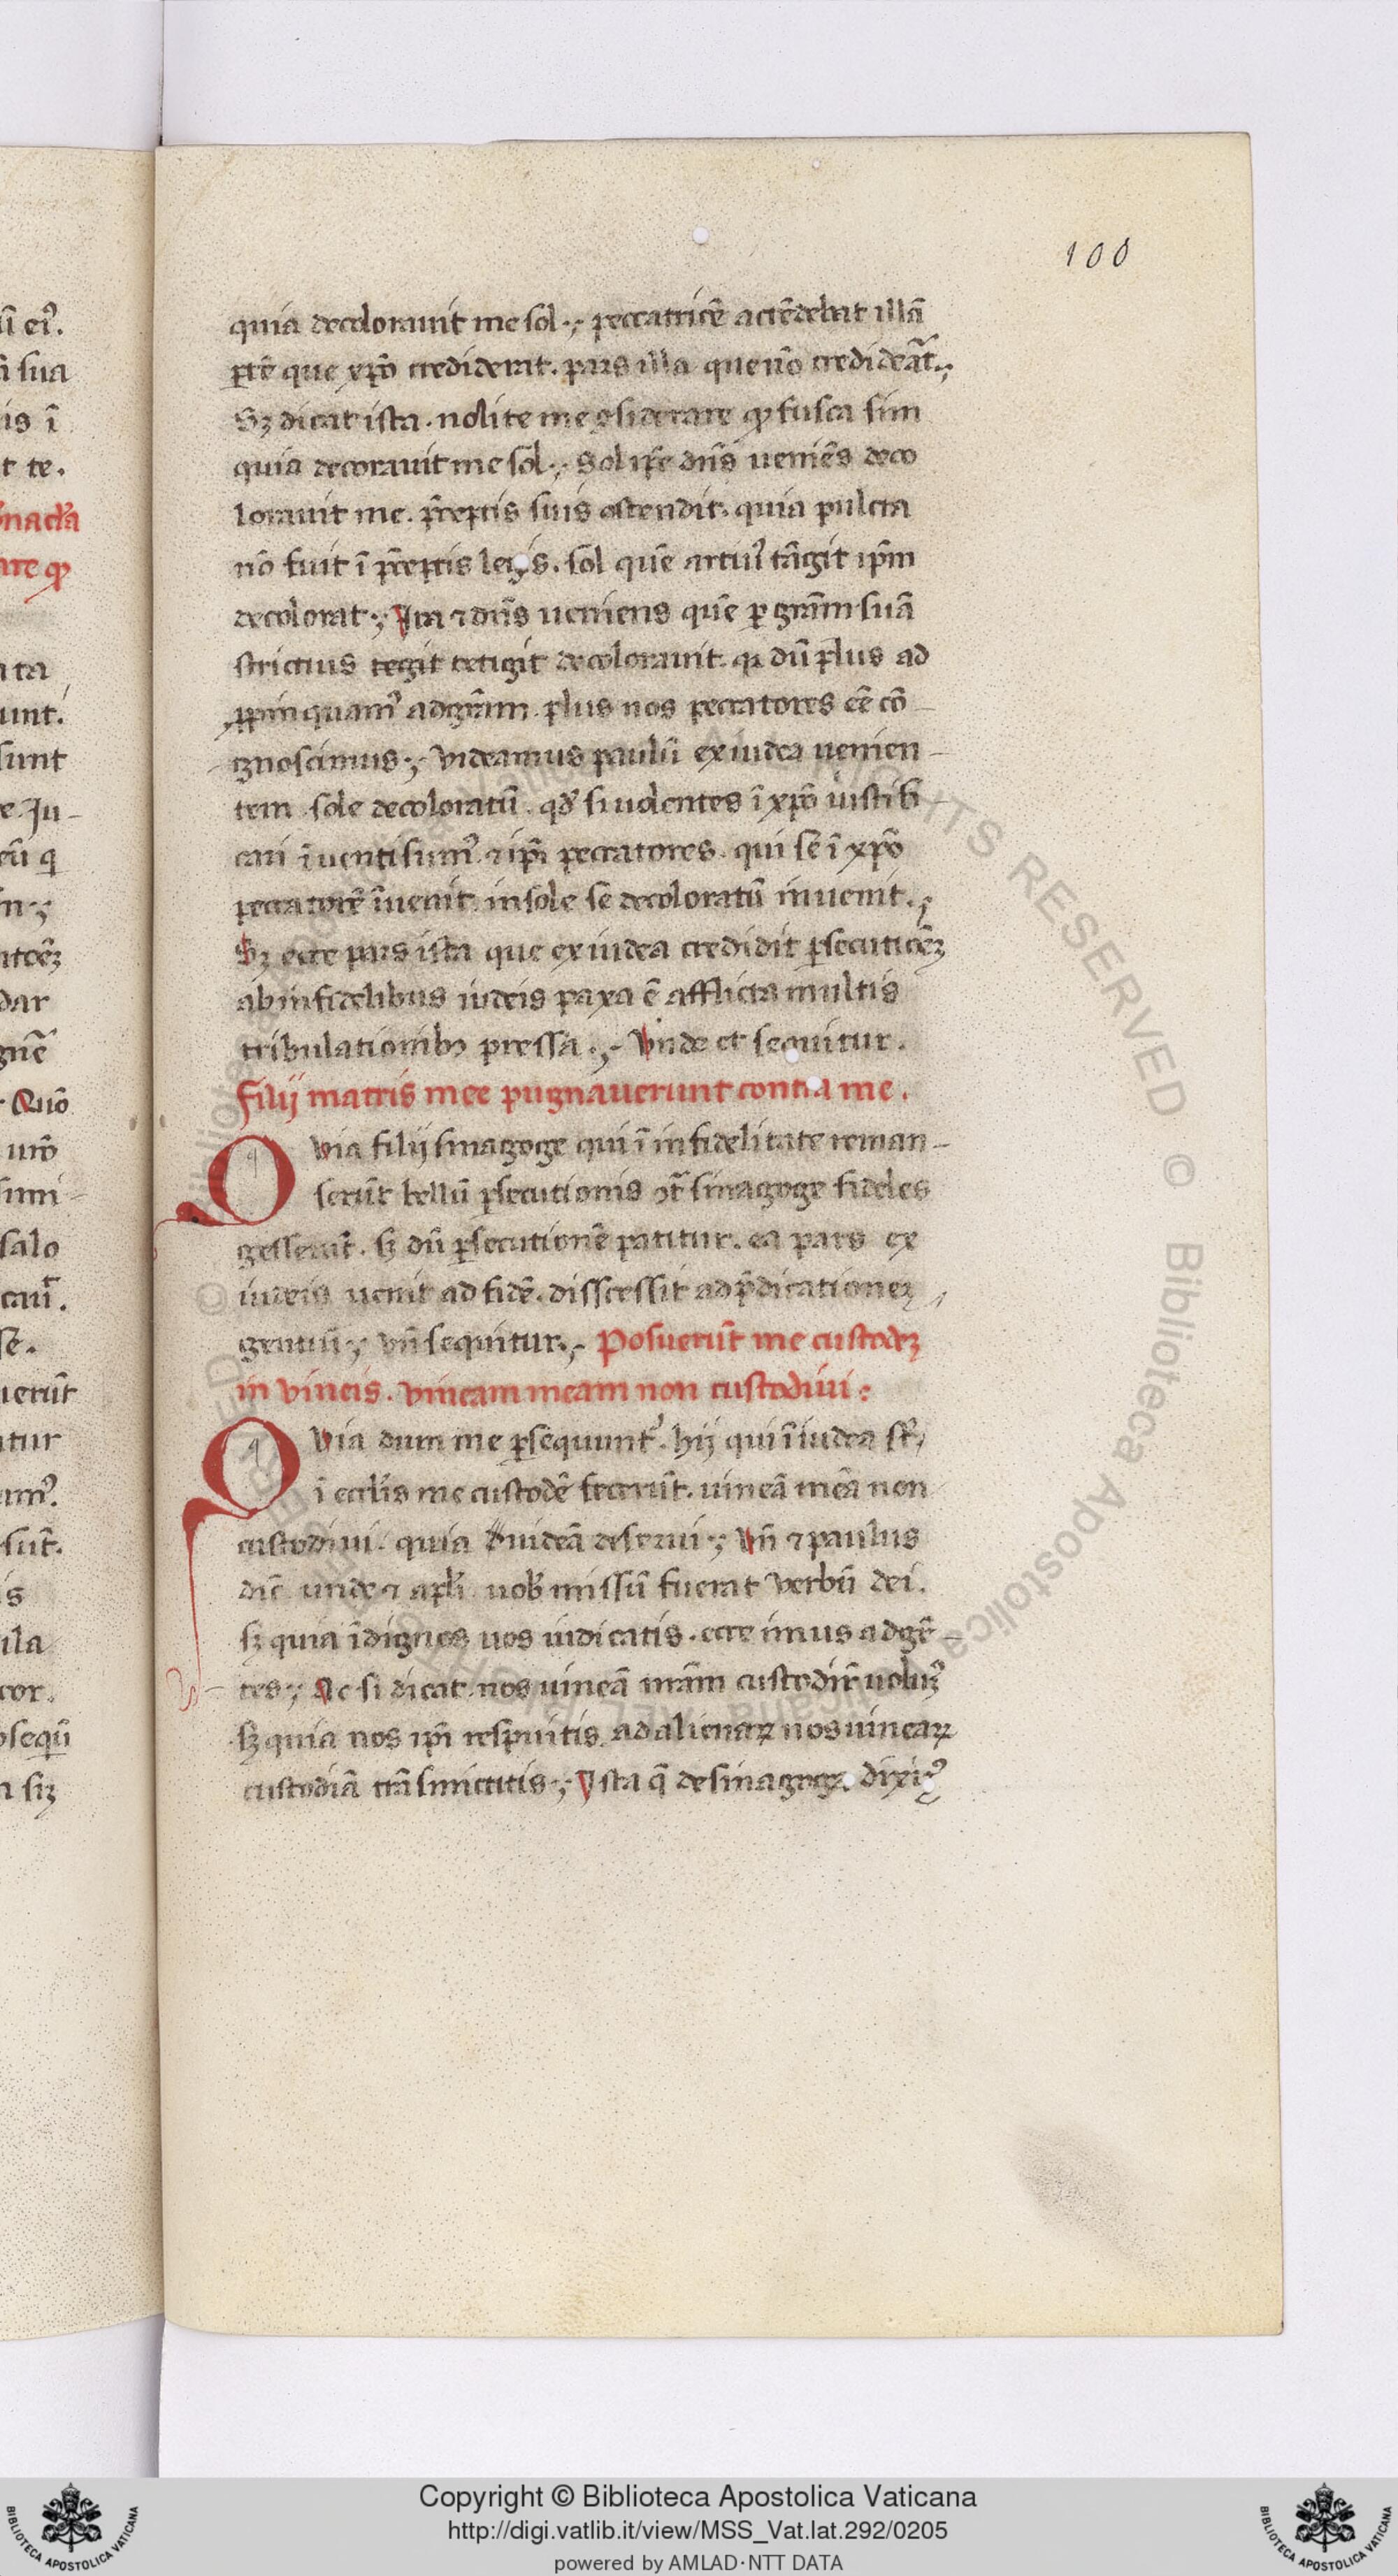 100
quia decolorauit me sol ·; peccatricē actēdebat illā
ꝑtē que xp̄o crediderat. pars illa que nō crediderāt.;
Sꝫ dicat ista. nolite me ꝯsiderare ꝙ fusca sim
quia decorauit me sol ·; Sol ip̄e dn̄s ueniēs deco
lorauit me. p̄ceptis suis ostendit. quia pulcra
nō fuit ī p̄ceptis legis. sol quē artiuꝰ tāgit ip̄m
decolorat ·; Ita ⁊ dn̄s ueniens quē ꝑ gr̄am suā
strictius tegit tetigit decolorauit. qꝛ dū plus ad
ꝓpinquamꝰ ad gr̄am plus nos peccatores eē cō
gnoscimus ·; videamus paulū ex iudea uenien-
tem sole decoloratū. qđ si uolentes ī xp̄o iustifi
cari īuenti sumꝰ ⁊ ip̄i peccatores. qui se ī xp̄o
peccatorē īuenit. in sole se decoloratū inuenit.;
Sꝫ ecce pars ista que ex iudea credidit ꝑsecuticēꝫ
ab infidelibus iudeis paxa ē afflicta multis
tribulationibꝫ pressa.;- Unde et sequitur.
Filij matris mee pugnauerunt contra me.
Quia filij sinagoge qui ī infidelitate reman-
serūt bellū ꝑsecutionis ꝯt̄ sinagoge fideles
gesserūt. sꝫ dū ꝑsecutionē patitur. ea pars ex
iudeis uenit ad fidē. disscessit ad p̄dicationeꝫ
gentiū ·; vn̄ sequitur.;- Posuerūt me custodeꝫ
in vineis. vineam meam non custodiui :
Quia dum me ꝑsequuntꝰ. hij qui ī iudea st̄,
ī eccl'is me custodē fecerūt. uineā meā non
custodiui. quia iudeā deserui ·; Un̄ ⁊ paulus
dic̄ unde ⁊ apl'i uob' missū fuerat verbū dei.
sꝫ quia īdignos uos iudicatis. ecce imus ad gē-
tes ·; Ac si dicat. nos uineā nr̄am custodir̄ uoluꝰ
sꝫ quia nos ip̄i respuitis ad alienaꝝ nos uineaꝝ
custodiā trāsmictitis ·; Ista q̄ de sinagoga diximꝰ
Copyright © Biblioteca Apostolica Vaticana
http://digi.vatlib.it/view/MSS_Vat.lat.292/0205
powered by AMLAD·NTT DATA